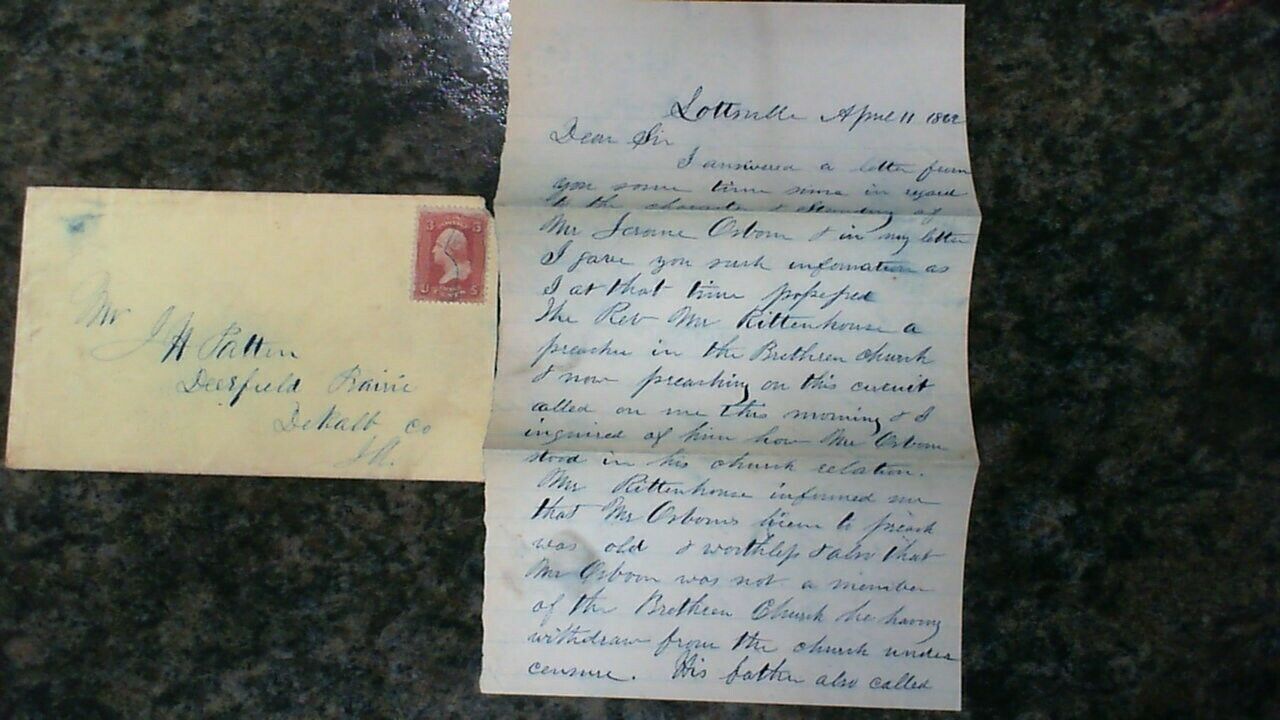 Mr
J H Patten
Deerfield Prairie
DeKalb Co
Ill.
3 3
U S
Lottsville April 11 1862
Dear Sir
I answered a letter from
you some time since in regard
to the character & standing of
Mr Jerome Osborn & in my letter
I gave you such information as
I at that time possessed
The Rev Mr Rittenhouse a
preacher in the Brethren church
& now preaching on this circuit
called on me this morning & I
inquired of him how Mr Osborn
stood in his church relation.
Mr Rittenhouse informed me
that Mr Osborns licen to preach
was old & worthless & also that
Mr Osborn was not a member
of the Brethren Church he having
withdraw from the church under
censure. His father also called